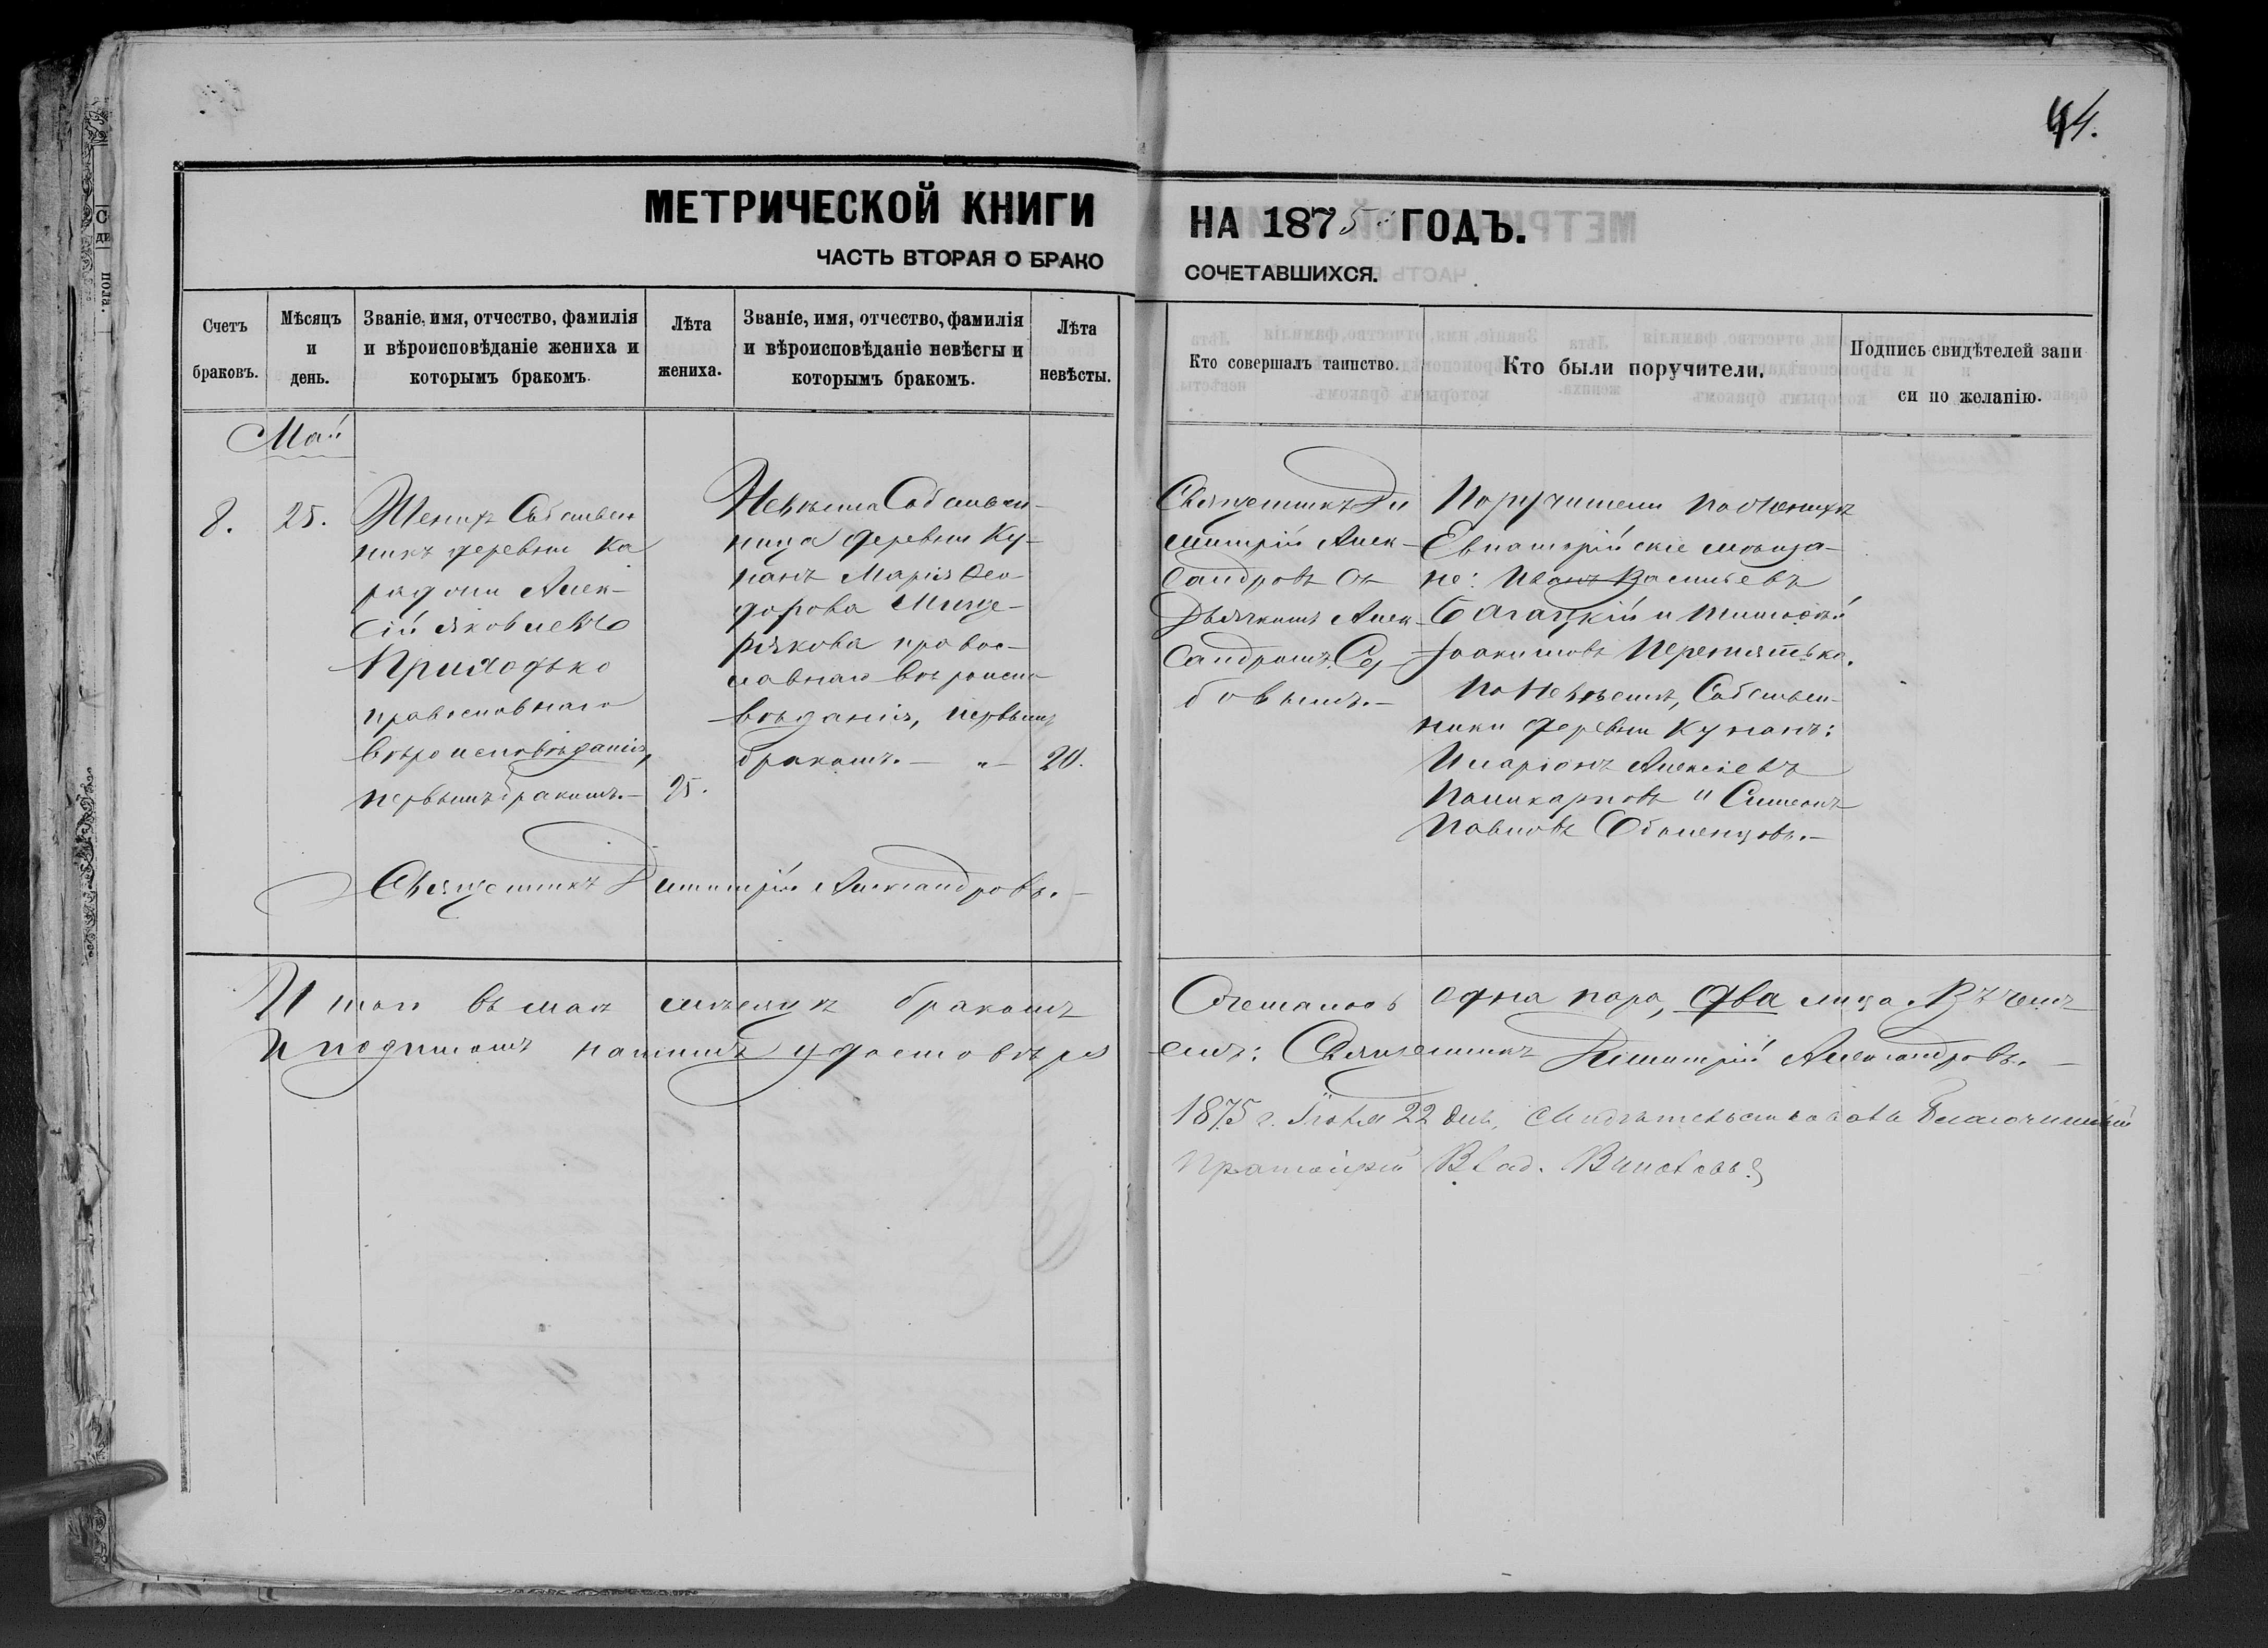 44.
МЕТРИЧЕСКОЙ КНИГИ НА 1875 ГОДЪ.
ЧАСТЬ ВТОРАЯ О БРАКО СОЧЕТАВШИХСЯ.
Счетъ браковъ.
Мѣсяцъ и день.
Званіе, имя, отчество, фамилія
и вѣроисповѣданіе жениха и
которымъ бракомъ.
Лѣта жениха.
Званіе, имя, отчество, фамилія
и вѣроисповѣданіе невѣсты и
которымъ бракомъ.
Лѣта невѣсты.
Кто совершалъ таинство.
Кто были поручители.
Подпись свидѣтелей запи
си по желанію.
Май
8.
25.
Женихъ Собствен
никъ деревни Ка
радж Алек-
сій Яковлевъ
Приходько
православнаго
вѣроисповѣданія,
первымъ бракомъ.—
25.
Невѣста Собствен-
ница деревни Ку-
панъ Марія Ѳео-
дорова Меще-
рякова правос-
лавнаго вѣроиспо
вѣданія, первымъ
бракомъ.— „ —
20.
Священникъ Ди
митрій Алек-
сандровъ съ
Дьячкомъ Алек-
сандромъ Сер
бовымъ.—
Поручители по женихѣ
Евпаторійскіе мѣща-
не: Иванъ Васильевъ
Багацкій и Тимофѣй
Іоакимовъ Перетятько.
По Невѣстѣ, Собствен-
ники деревни Купанъ:
Иларіонъ Алексіевъ
Поликарповъ и Симеонъ
Павловъ Оболенцовъ.—
Священникъ Димитрій Александровъ.—
Итого въ маѣ мѣсяцѣ бракомъ Сочеталось одна пара, два лица. Въ чемъ
и подписомъ нашимъ удостовѣря емъ: Священникъ Димитрій Александровъ.—
1875 г. Іюня 22 дня, свидѣтельствовалъ Благочинный
Протоіерей Влад.